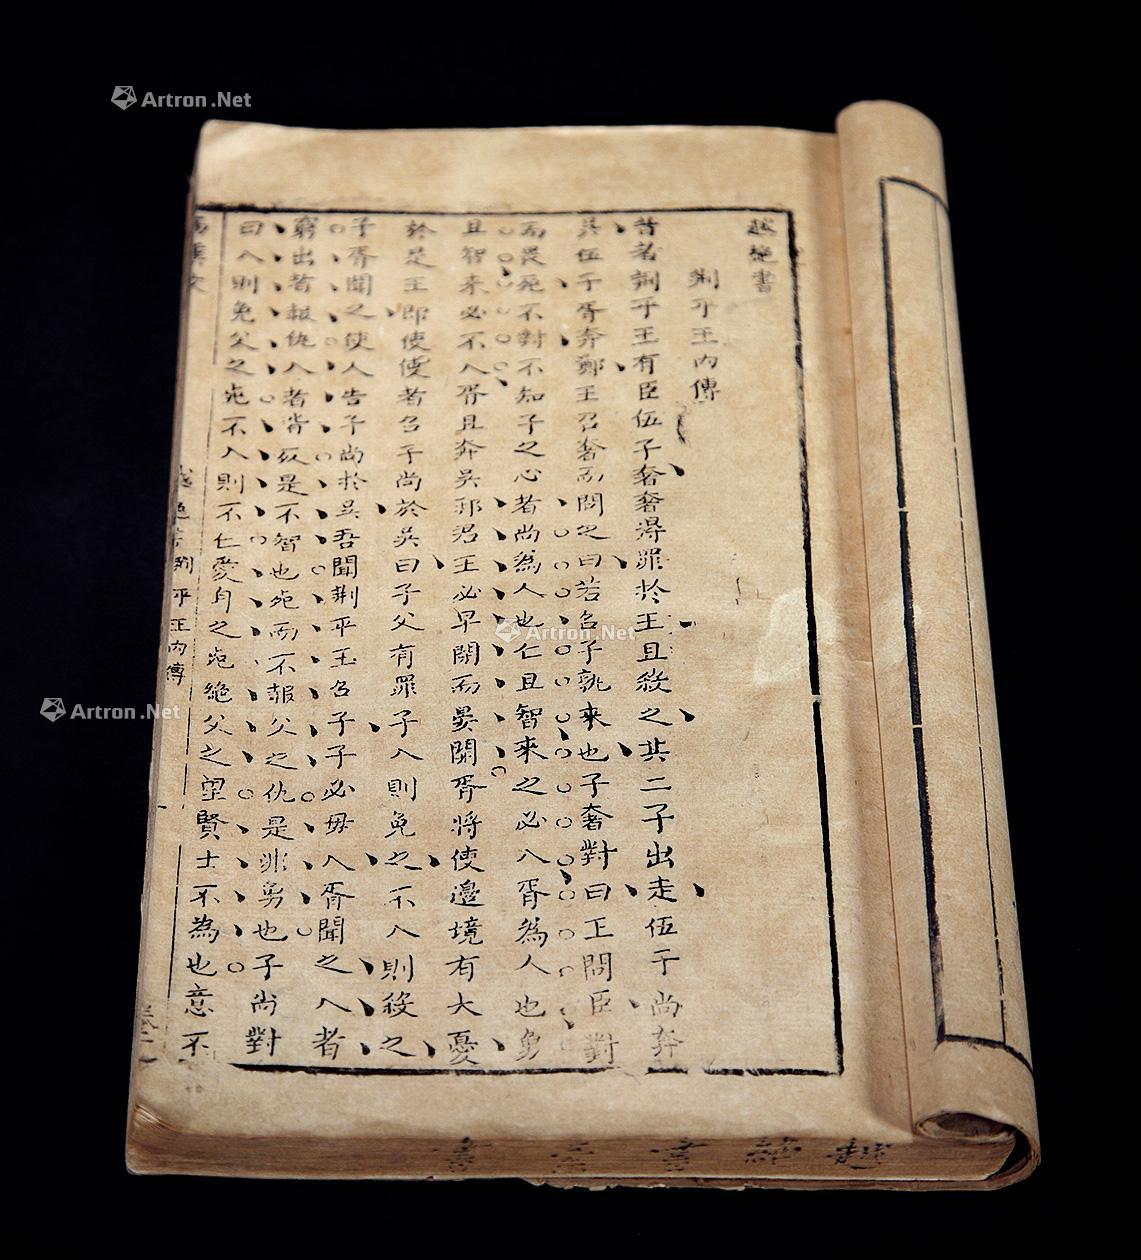 越絕書
荆平王内傳
昔者荆平王有臣伍子奢奢得罪於王且殺之其二子出走伍子尚奔
吳伍子胥奔鄭王召奢而問之曰若召子孰來也子奢對曰王問臣對
而畏死不對不知子之心者尚為人也仁且智來之必入胥為人也勇
且智來必不入胥且奔吳邦君王必早閉而晏開胥將使邊境有大憂
於是王即使使者召子尚於吳曰子父有罪子入則免之不入則殺之
子胥聞之使人告子尚於吳吾聞荆平王召子子必毋入胥聞之入者
窮出者報仇入者皆死是不智也死而不報父之仇是非勇也子尚對
曰入則免父之死不入則不仁愛身之死絕父之望賢士不為也意不
越絕書荆平王内傳
越絕書
Artron.Net
Artron.Net
Artron.Net